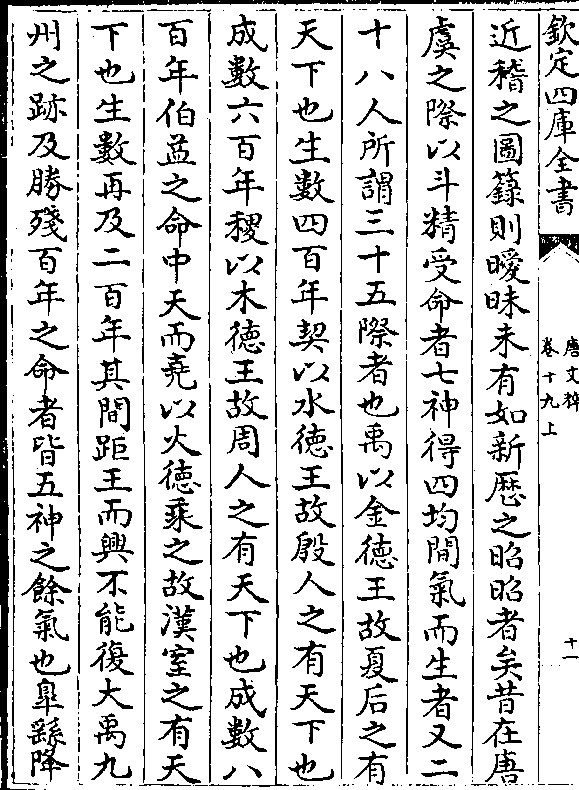 欽定四庫全書
唐文粹
卷十九上
十一
近稽之圖籙則曖昧未有如新歴之昭昭者矣昔在唐
虞之際以斗精受命者七神得四均間氣而生者又二
十八人所謂三十五際者也禹以金徳王故夏后之有
天下也生數四百年契以水徳王故殷人之有天下也
成數六百年稷以木徳王故周人之有天下也成數八
百年伯益之命中天而堯以火徳乗之故漢室之有天
下也生數再及二百年其間距王而興不能復大禹九
州之跡及勝殘百年之命者皆五神之餘氣也臯繇降